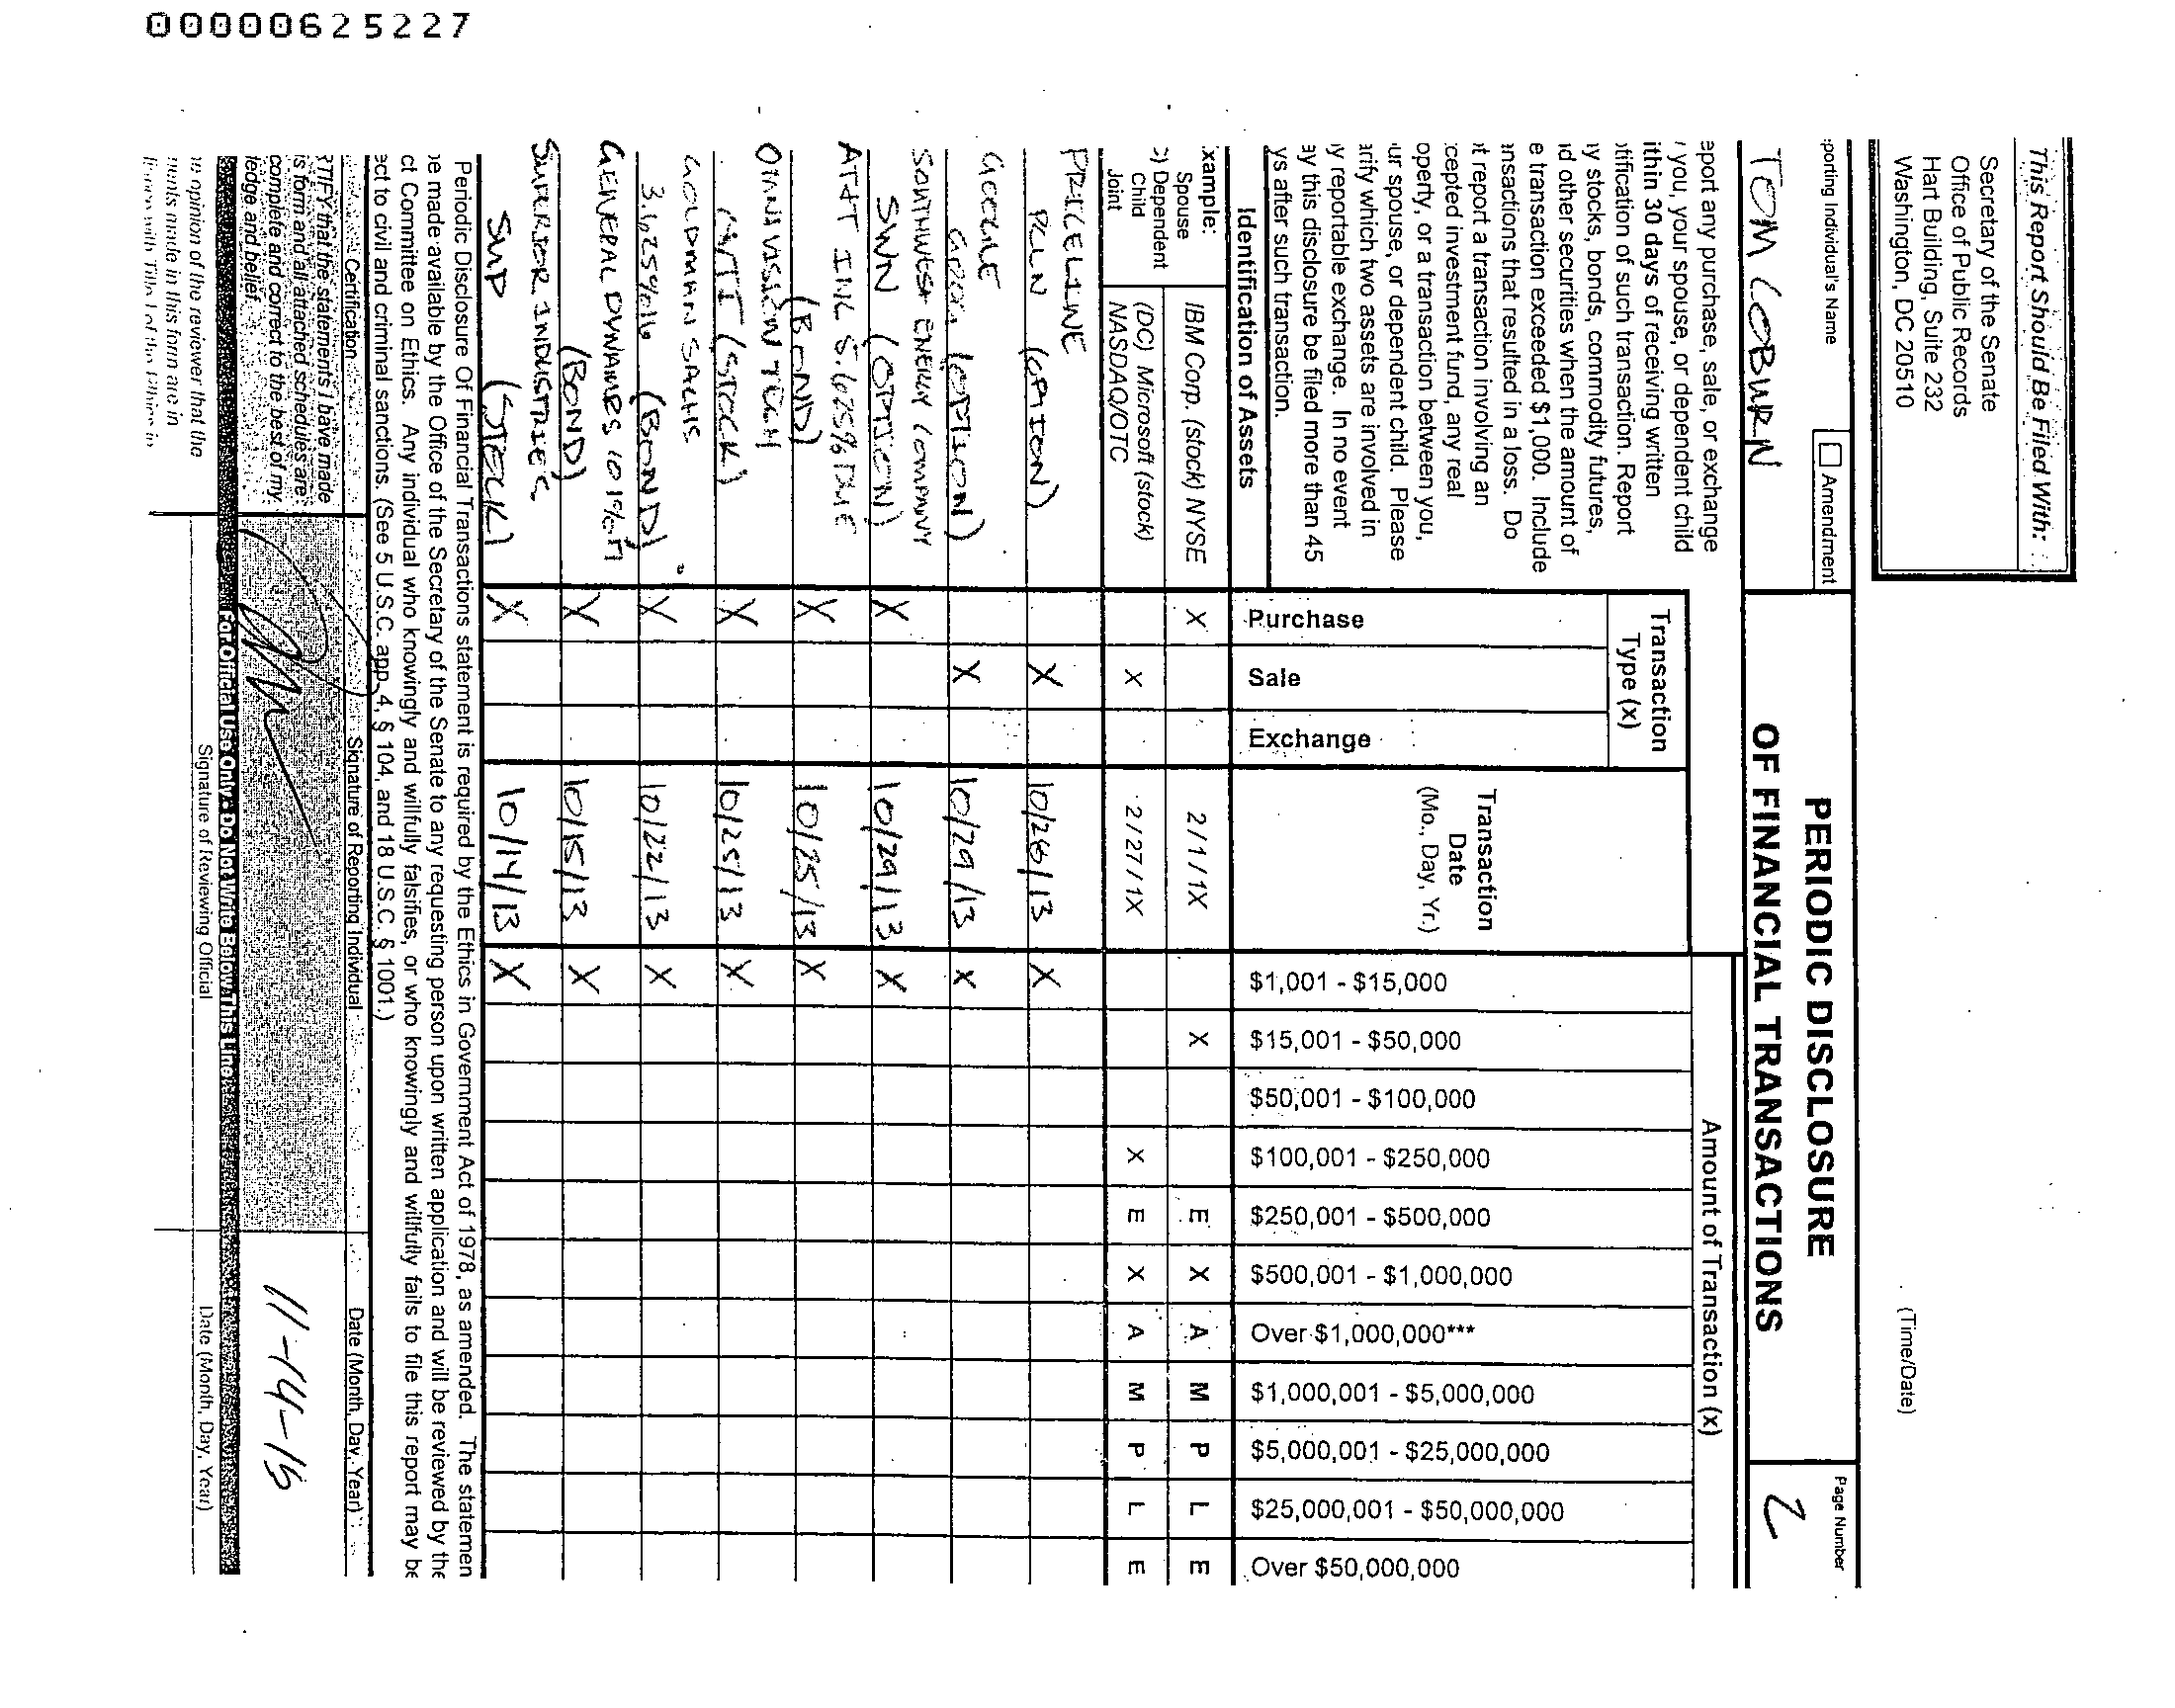 00000625227
(Time/Date)
This Report Should Be Filed With:
Secretary of the Senate
Office of Public Records
Hart Building, Suite 232
Washington, DC 20510
PERIODIC DISCLOSURE
OF FINANCIAL TRANSACTIONS
porting Individual's Name
Amendment
Page Number
TOM COBURN
2
eport any purchase, sale, or exchange
you, your spouse, or dependent child
ithin 30 days of receiving written
otification of such transaction. Report
ny stocks, bonds, commodity futures,
nd other securities when the amount of
e transaction exceeded $1,000. Include
ansactions that resulted in a loss. Do
ot report a transaction involving an
cepted investment fund, any real
operty, or a transaction between you,
ur spouse, or dependent child. Please
arify which two assets are involved in
ny reportable exchange. In no event
ay this disclosure be filed more than 45
ys after such transaction.
Identification of Assets
Transaction
Type (x)
Purchase
Sale
Exchange
Transaction
Date
(Mo., Day, Yr.)
Amount of Transaction (x)
$1,001 - $15,000
$15,001 - $50,000
$50,001 - $100,000
$100,001 - $250,000
$250,001 - $500,000
$500,001 - $1,000,000
Over $1,000,000***
$1,000,001 - $5,000,000
$5,000,001 - $25,000,000
$25,000,001 - $50,000,000
Over $50,000,000
xample:
Spouse
) Dependent
Child
Joint
IBM Corp. (stock) NYSE X 2/1/1X X E X A M P L E
(DC) Microsoft (stock)
NASDAQ/OTC X 2/27/1X X E X A M P L E
PRICELINE
PCLN (OPTION) X 10/28/13 X
GOOGLE
GOOG (OPTION) X 10/29/13 X
SOUTHWEST ENERGY COMPANY
SWN (OPTION) X 10/29/13 X
AT&T INC 5.625% DUE
(BOND) X 10/25/13 X
OMNIVISION TECH
(STOCK) X 10/25/13 X
GOLDMAN SACHS
3.625% 16 (BOND) X 10/22/13 X
GENERAL DYNAMICS
(BOND) X 10/15/13 X
SUPERIOR INDUSTRIES
SUP (STOCK) X 10/14/13 X
Periodic Disclosure Of Financial Transactions statement is required by the Ethics in Government Act of 1978, as amended. The statemen
be made available by the Office of the Secretary of the Senate to any requesting person upon written application and will be reviewed by the
ct Committee on Ethics. Any individual who knowingly and willfully falsifies, or who knowingly and willfully fails to file this report may be
ect to civil and criminal sanctions. (See 5 U.S.C. app. 4, § 104, and 18 U.S.C. § 1001.)
Certification
Signature of Reporting Individual
Date (Month, Day, Year)
RTIFY that the statements I have made
is form and all attached schedules are
complete and correct to the best of my
ledge and belief.
11-14-13
For Official Use Only - Do Not Write Below This Line
e opinion of the reviewer that the
ments made in this form are in
Signature of Reviewing Official
Date (Month, Day, Year)